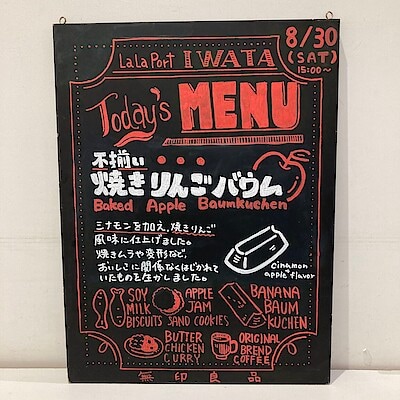 8/30
(SAT)
15:00～
LaLa Port IWATA
Today's MENU
不揃い
焼きりんごバウム
Baked Apple Baumkuchen
ミナモンを加え、焼きりんご
風味に仕上げました。
焼きムラや変形など、
おいしさに関係なくはじかれて
いたものを生かしました。
cinamon
apple flavor
SOY
MILK
BISCUITS
APPLE
JAM
SAND COOKIES
BANANA
BAUM
KUCHEN
BUTTER
CHICKEN
CURRY
ORIGINAL
BREND
COFFEE
無印良品